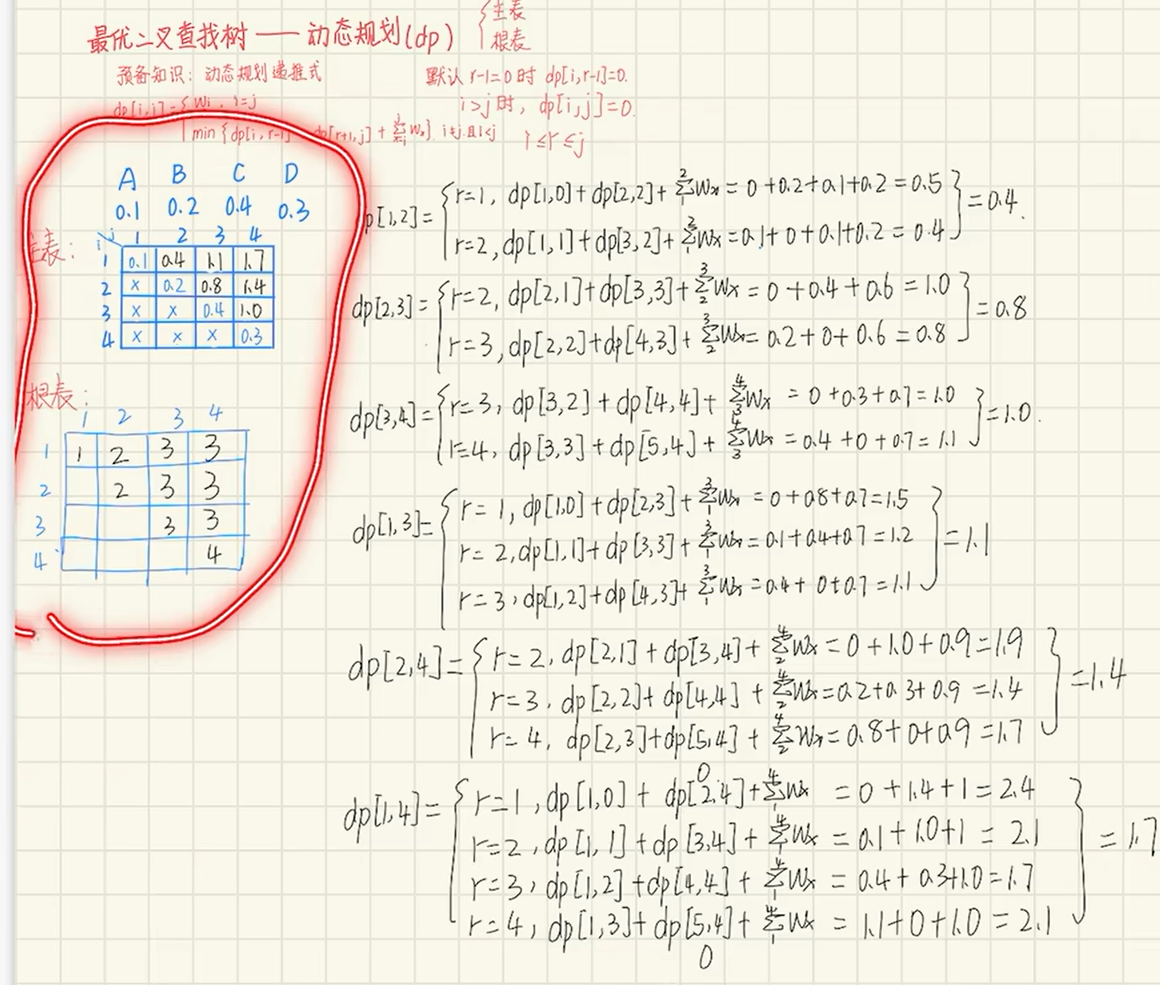 最优二叉查找树——动态规划(dp) { 主表
根表
预备知识：动态规划递推式
默认 r-1=0 时 dp[i,r-1]=0.
dp[i,j]={ Wi, i=j
i>j时, dp[i,j]=0.
min{dp[i,r-1]+dp[r+1,j]+∑Wx} i≠j且i<j
1≤r≤j
A B C D
0.1 0.2 0.4 0.3
主表:
i j 1 2 3 4
1 0.1 0.4 1.1 1.7
2 x 0.2 0.8 1.4
3 x x 0.4 1.0
4 x x x 0.3
根表:
1 2 3 4
1 1 2 3 3
2 2 3 3
3 3 3
4 4
dp[1,2]={ r=1, dp[1,0]+dp[2,2]+∑₁²Wx=0+0.2+0.1+0.2=0.5
r=2, dp[1,1]+dp[3,2]+∑₁²Wx=0.1+0+0.1+0.2=0.4 } =0.4.
dp[2,3]={ r=2, dp[2,1]+dp[3,3]+∑₂³Wx=0+0.4+0.6=1.0
r=3, dp[2,2]+dp[4,3]+∑₂³Wx=0.2+0+0.6=0.8 } =0.8
dp[3,4]={ r=3, dp[3,2]+dp[4,4]+∑₃⁴Wx=0+0.3+0.7=1.0
r=4, dp[3,3]+dp[5,4]+∑₃⁴Wx=0.4+0+0.7=1.1 } =1.0.
dp[1,3]={ r=1, dp[1,0]+dp[2,3]+∑₁³Wx=0+0.8+0.7=1.5
r=2, dp[1,1]+dp[3,3]+∑₁³Wx=0.1+0.4+0.7=1.2
r=3, dp[1,2]+dp[4,3]+∑₁³Wx=0.4+0+0.7=1.1 } =1.1
dp[2,4]={ r=2, dp[2,1]+dp[3,4]+∑₂⁴Wx=0+1.0+0.9=1.9
r=3, dp[2,2]+dp[4,4]+∑₂⁴Wx=0.2+0.3+0.9=1.4
r=4, dp[2,3]+dp[5,4]+∑₂⁴Wx=0.8+0+0.9=1.7 } =1.4
0
dp[1,4]={ r=1, dp[1,0]+dp[2,4]+∑₁⁴Wx=0+1.4+1=2.4
r=2, dp[1,1]+dp[3,4]+∑₁⁴Wx=0.1+1.0+1=2.1
r=3, dp[1,2]+dp[4,4]+∑₁⁴Wx=0.4+0.3+1.0=1.7
r=4, dp[1,3]+dp[5,4]+∑₁⁴Wx=1.1+0+1.0=2.1 } =1.7
0